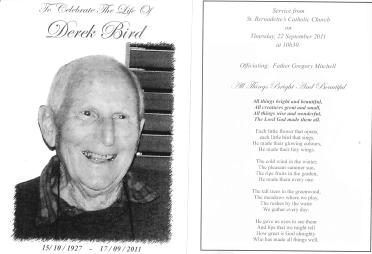 To Celebrate The Life Of
Derek Bird
15/10/1927 - 17/09/2011
Service from
St. Bernadette's Catholic Church
on
Thursday, 22 September 2011
at 10h30.
Officiating: Father Gregory Mitchell
All Things Bright And Beautiful
All things bright and beautiful,
All creatures great and small,
All things wise and wonderful,
The Lord God made them all.
Each little flower that opens,
each little bird that sings,
He made their glowing colours,
He made their tiny wings.
The cold wind in the winter,
The pleasant summer sun,
The ripe fruits in the garden,
He made them every one
The tall trees in the greenwood,
The meadows where we play,
The rushes by the water
We gather every day.
He gave us eyes to see them
And lips that we might tell
How great is God almighty
Who has made all things well.